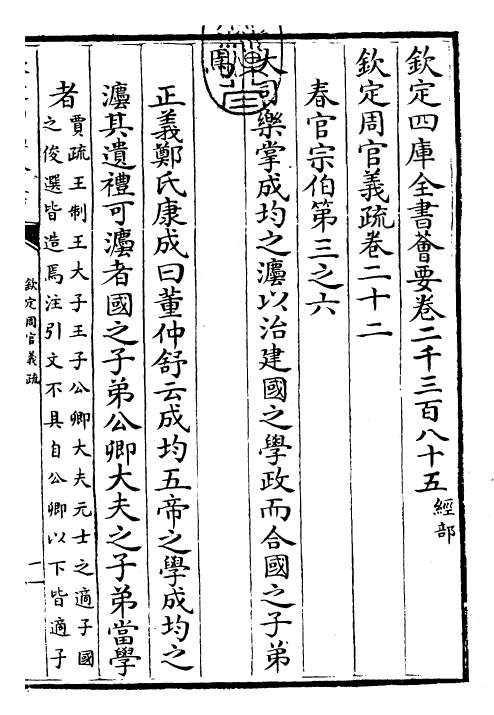 欽定四庫全書薈要卷二千三百八十五 經部
欽定周官義疏卷二十二
春官宗伯第三之六
大司樂掌成均之灋以治建國之學政而合國之子弟
正義鄭氏康成曰董仲舒云成均五帝之學成均之
灋其遺禮可灋者國之子弟公卿大夫之子弟當學
者 賈疏王制王大子王子公卿大夫元士之適子國
之俊選皆造焉注引文不具自公卿以下皆適子
欽定周官義疏